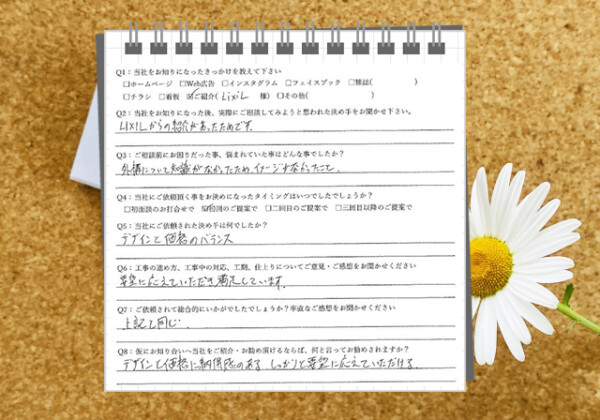 Q1：当社をお知りになったきっかけを教えて下さい
□ホームページ □Web広告 □インスタグラム □フェイスブック □雑誌( )
□チラシ □看板 ☑ご紹介( LIXIL 様) □その他( )
Q2：当社をお知りになった後、実際にご相談してみようと思われた決め手をお聞かせ下さい。
LIXILからの紹介があったためです。
Q3：ご相談前にお困りだった事、悩まれていた事はどんな事でしたか？
外構について知識がなかったため、イメージすなかったこと。
Q4：当社にご依頼頂く事をお決めになったタイミングはいつでしたでしょうか？
□初面談のお打合せで ☑初回のご提案で □二回目のご提案で □三回目以降のご提案で
Q5：当社にご依頼された決め手は何でしたか？
デザインと価格のバランス
Q6：工事の進め方、工事中の対応、工期、仕上りについてご意見・ご感想をお聞かせください
要望に応えていただき満足しています。
Q7：ご依頼されて総合的にいかがでしたでしょうか？率直なご感想をお聞かせください
上記と同じ。
Q8：仮にお知り合いへ当社をご紹介・お勧め頂けるならば、何と言ってお勧めされますか？
デザインと価格に納得感のある しっかりと要望に応えていただける。